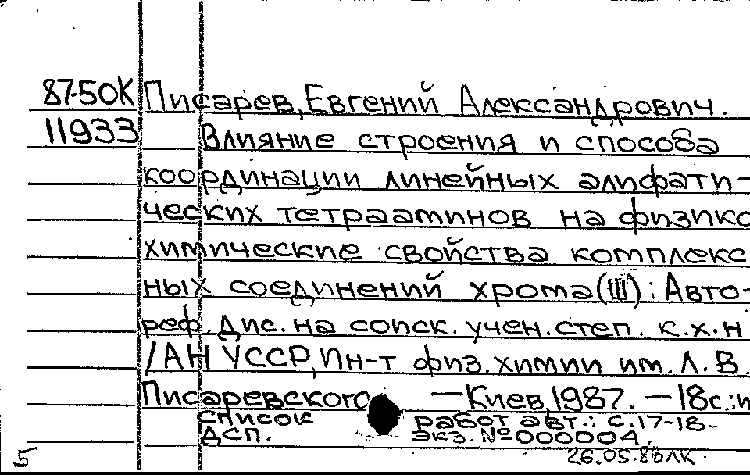 87-50К Писарев, Евгений Александрович.
11933 Влияние строения и способа
координации линейных алифати-
ческих тетрааминов на физико
химические свойства комплекс
ных соединений хрома (III): Авто-
реф. Дис. на соиск. учен. степ. к.х.н
/АН УССР, Ин-т физ. химии им. Л. В
Писаревского — Киев 1987. — 18с.: и
Список работ авт.: с. 17-18.
ДСП. Экз. №000004.
5 26.05.88 ЛК